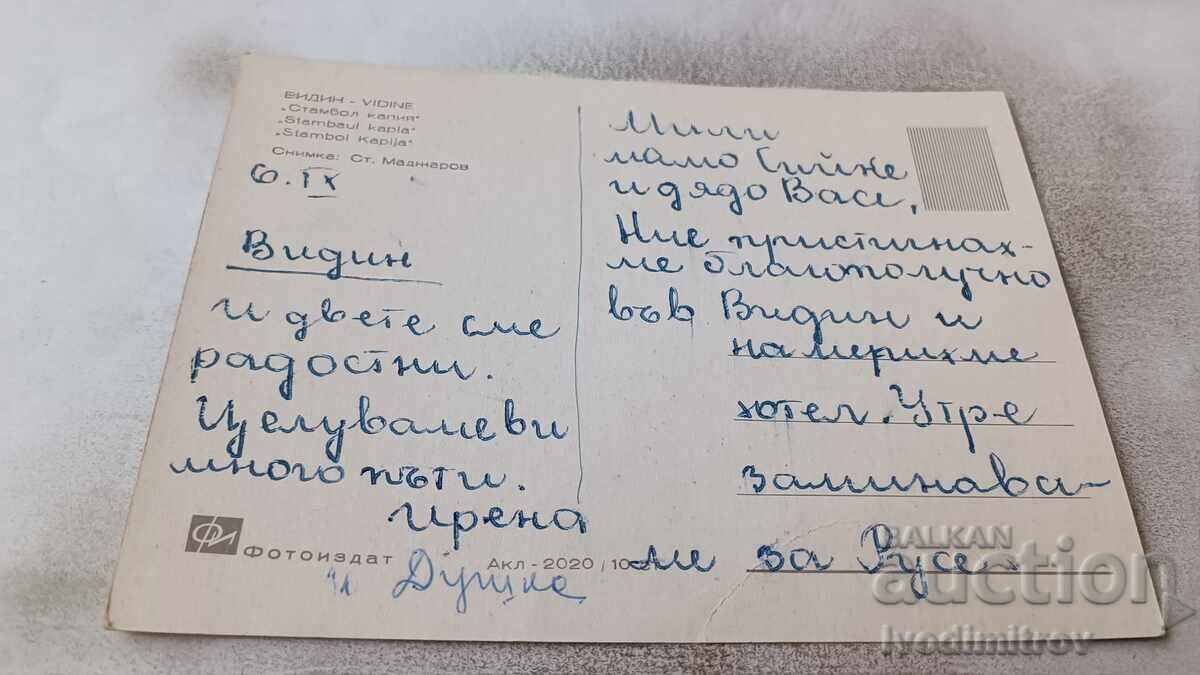 ВИДИН - VIDINE
„Стамбол капия"
„Stambaul kapia"
„Stambol Kapija"
Снимка: Ст. Маджаров
6. IX
Видин
и двете сме
радостни.
Целуваме ви
много пъти.
Ирена
и Душка
ФИ
Фотоиздат
Акл-2020
Мили
мамо Сийке
и дядо Васе,
Ние пристигнах-
ме благополучно
във Видин и
намерихме
хотел. Утре
заминава-
ме за Русе.
BALKAN
auction
Ivodimitrov